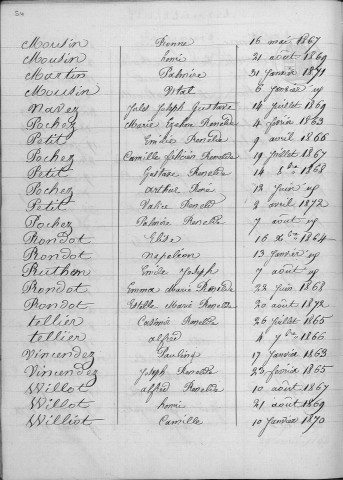 54
Mousin Pierre 16 mai 1867
Mousin henri 21 août 1869
Martin Palmire 31 janvier 1871
Mousin Vital 6 février id
Navez Jules Joseph Gustave 14 juillet 1869
Pochez Marie Ronelde 4 février 1863
Petit Emile Ronelde 9 avril 1866
Pochez Camille Ronelde 19 juillet 1867
Petit Gustave Ronelde 14 8bre 1868
Pochez arthur René 13 juin id
Petit Valie Ronelde 2 avril 1872
Pochez Palmire Ronelde 7 août id
Rondot Elise 16 Xbre 1864
Rondot napoléon 13 janvier id
Ruthon Emile Joseph 7 août id
Rondot Emma Marie Ronelde 22 juin 1868
Rondot Estelle Marie Ronelde 20 août 1872
tellier Casimir Ronelde 26 juillet 1865
tellier alfred 4 7bre 1866
Vincendez Pauline 17 janvier 1863
Vincendez Joseph Ronelde 23 février 1865
Willot alfred Ronelde 10 août 1867
Willot henri 21 août 1869
Williot Camille 10 janvier 1870